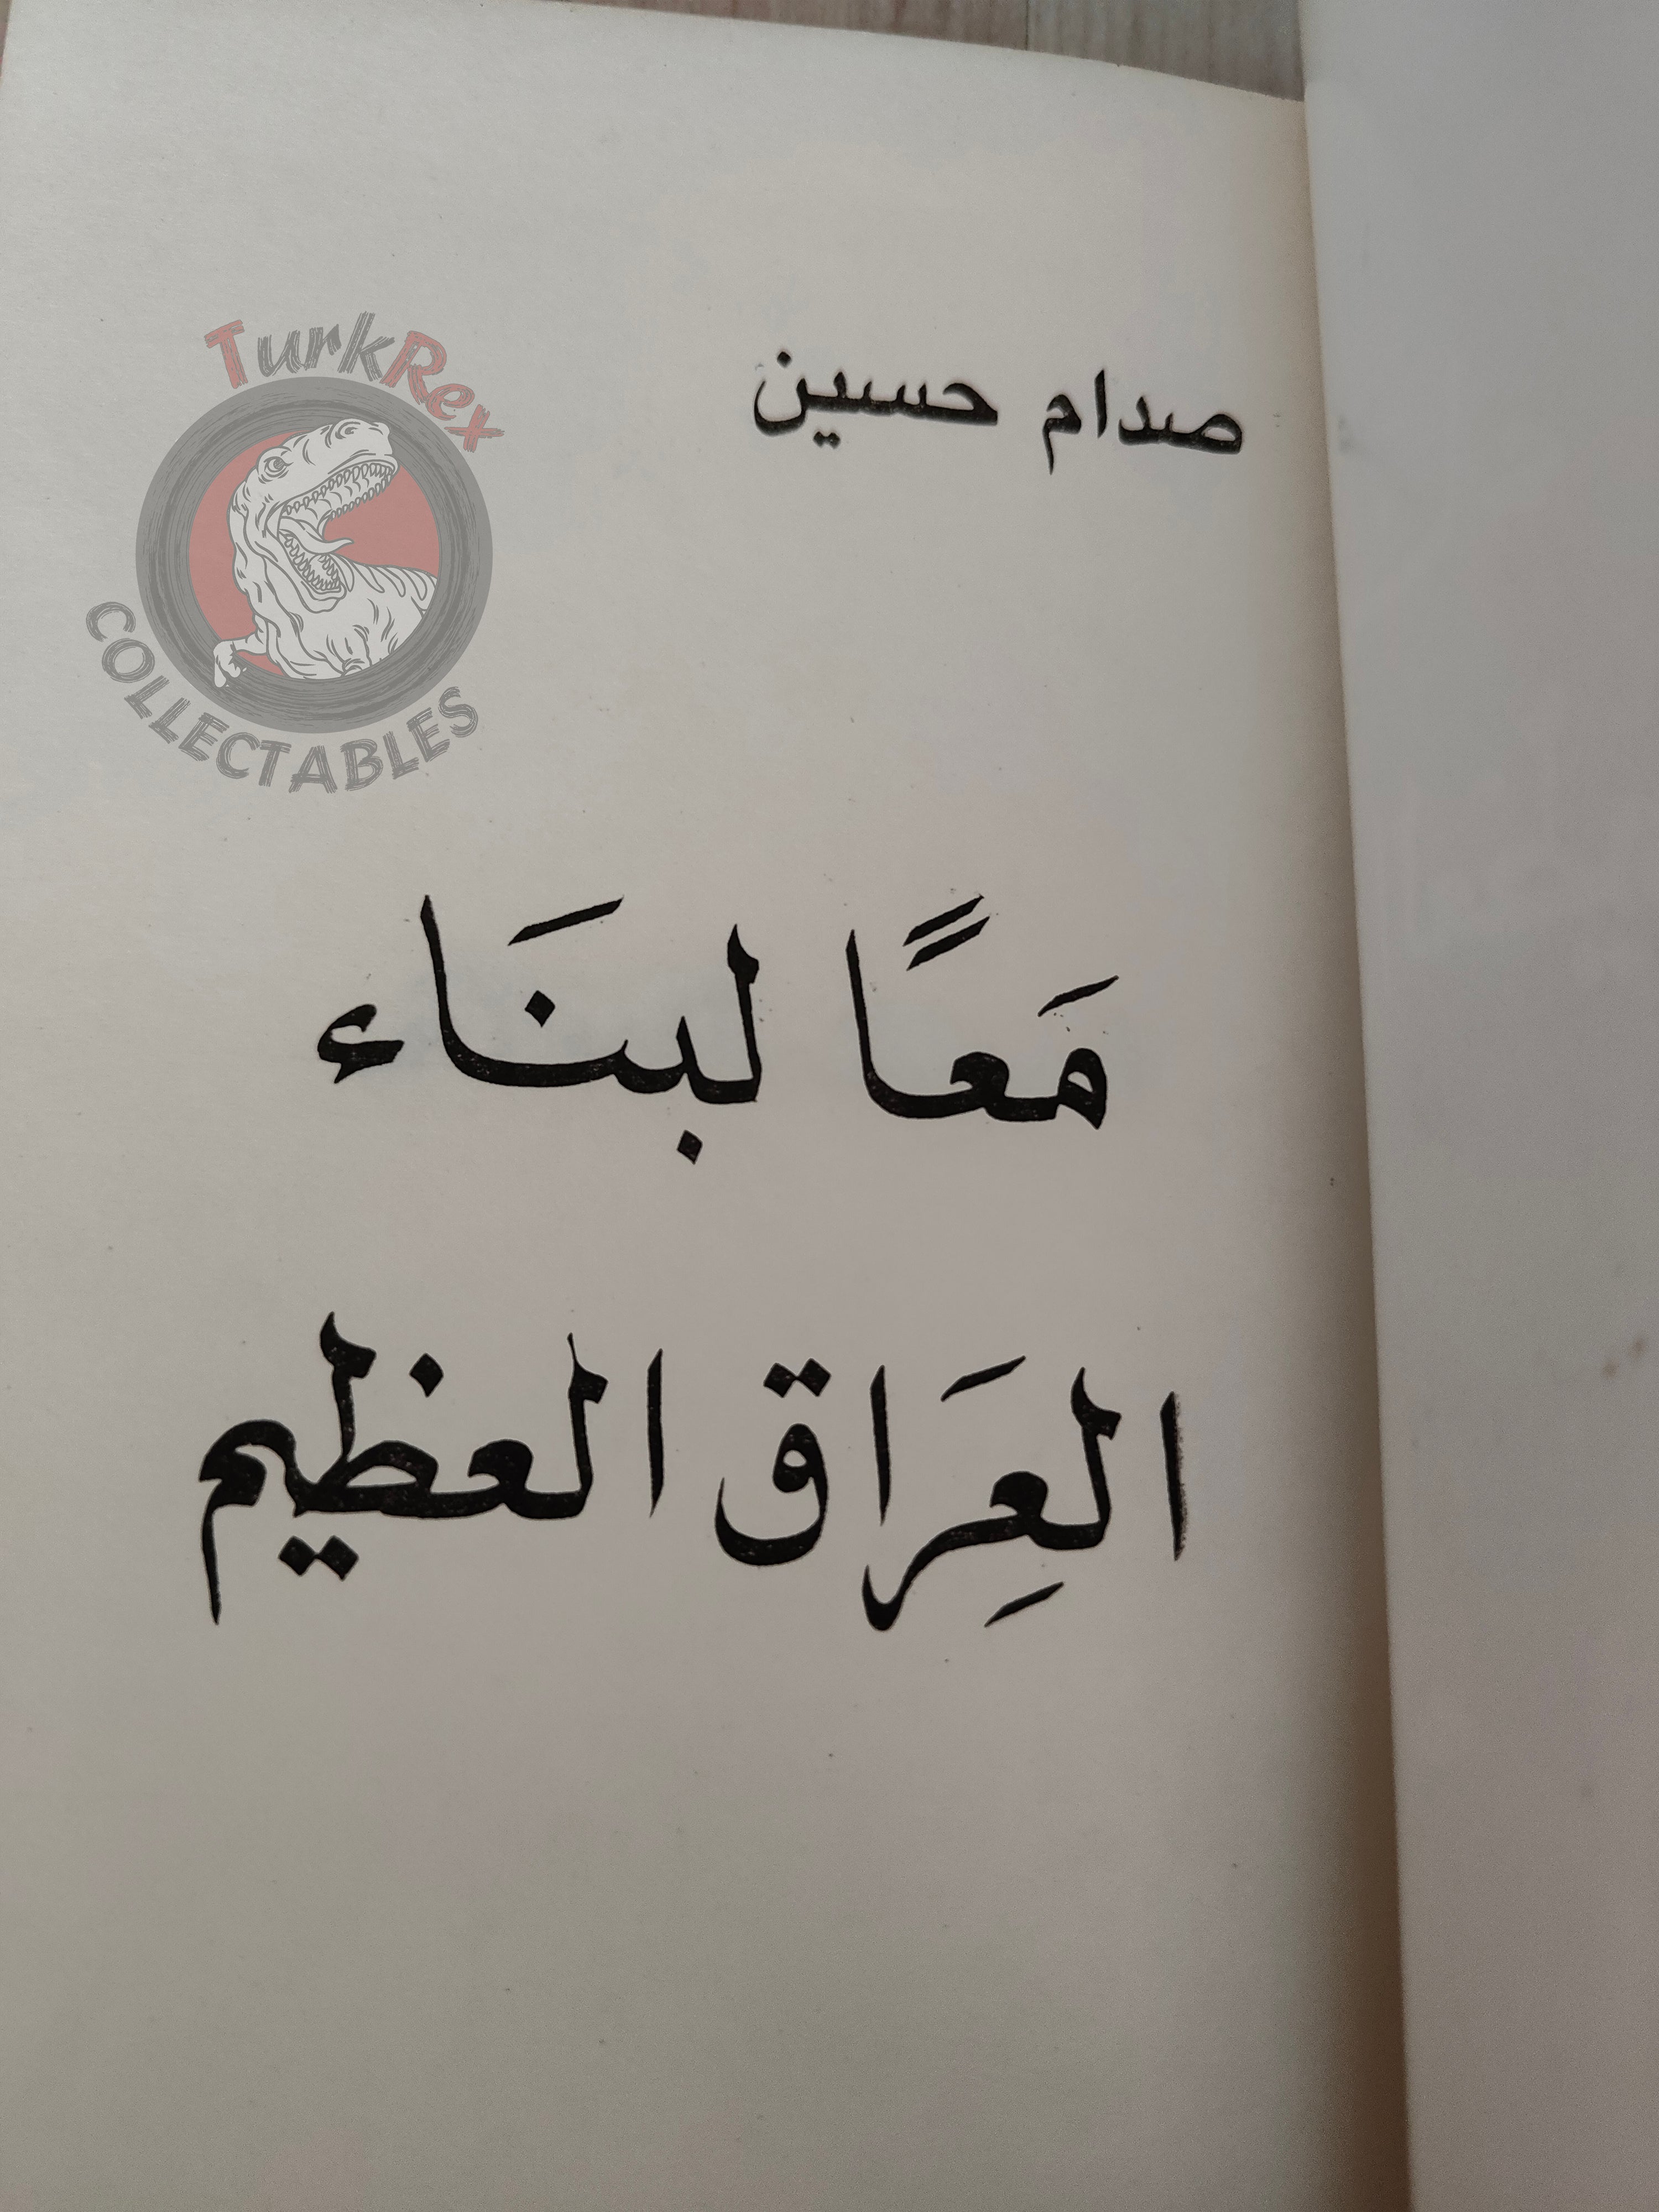 TurkRex
COLLECTABLES
صدام حسين
مَعًا لبنَاء
العِرَاق العظيم